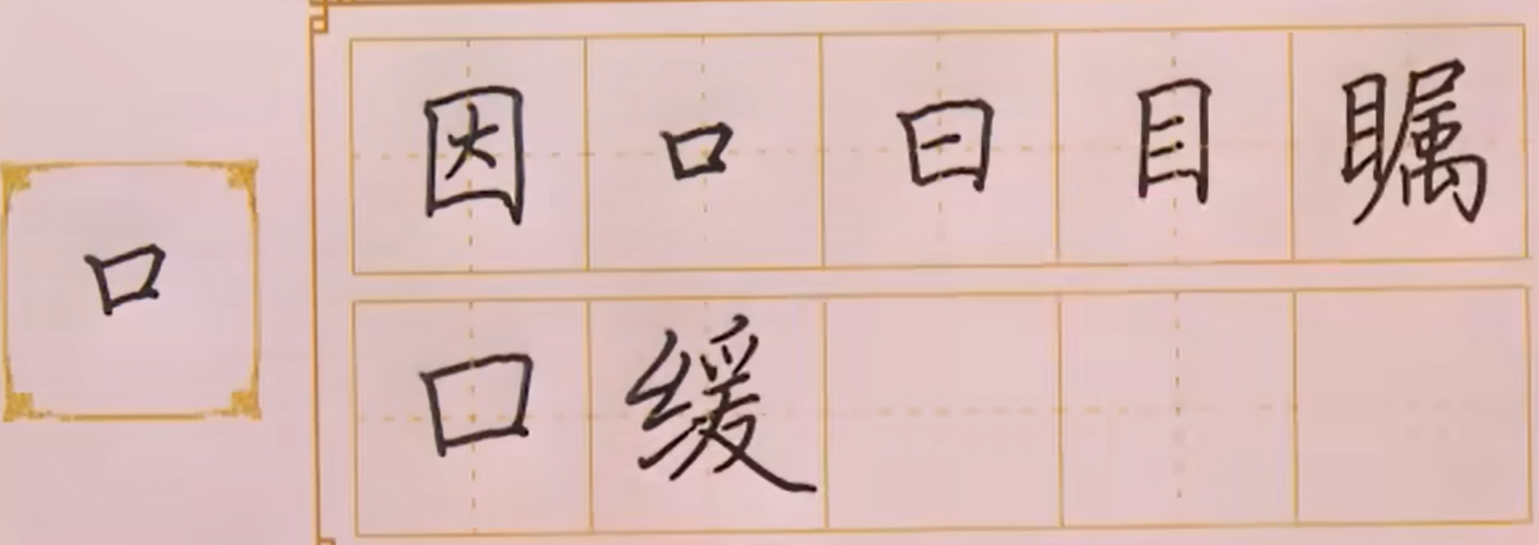 口
因口曰目瞩
口缓